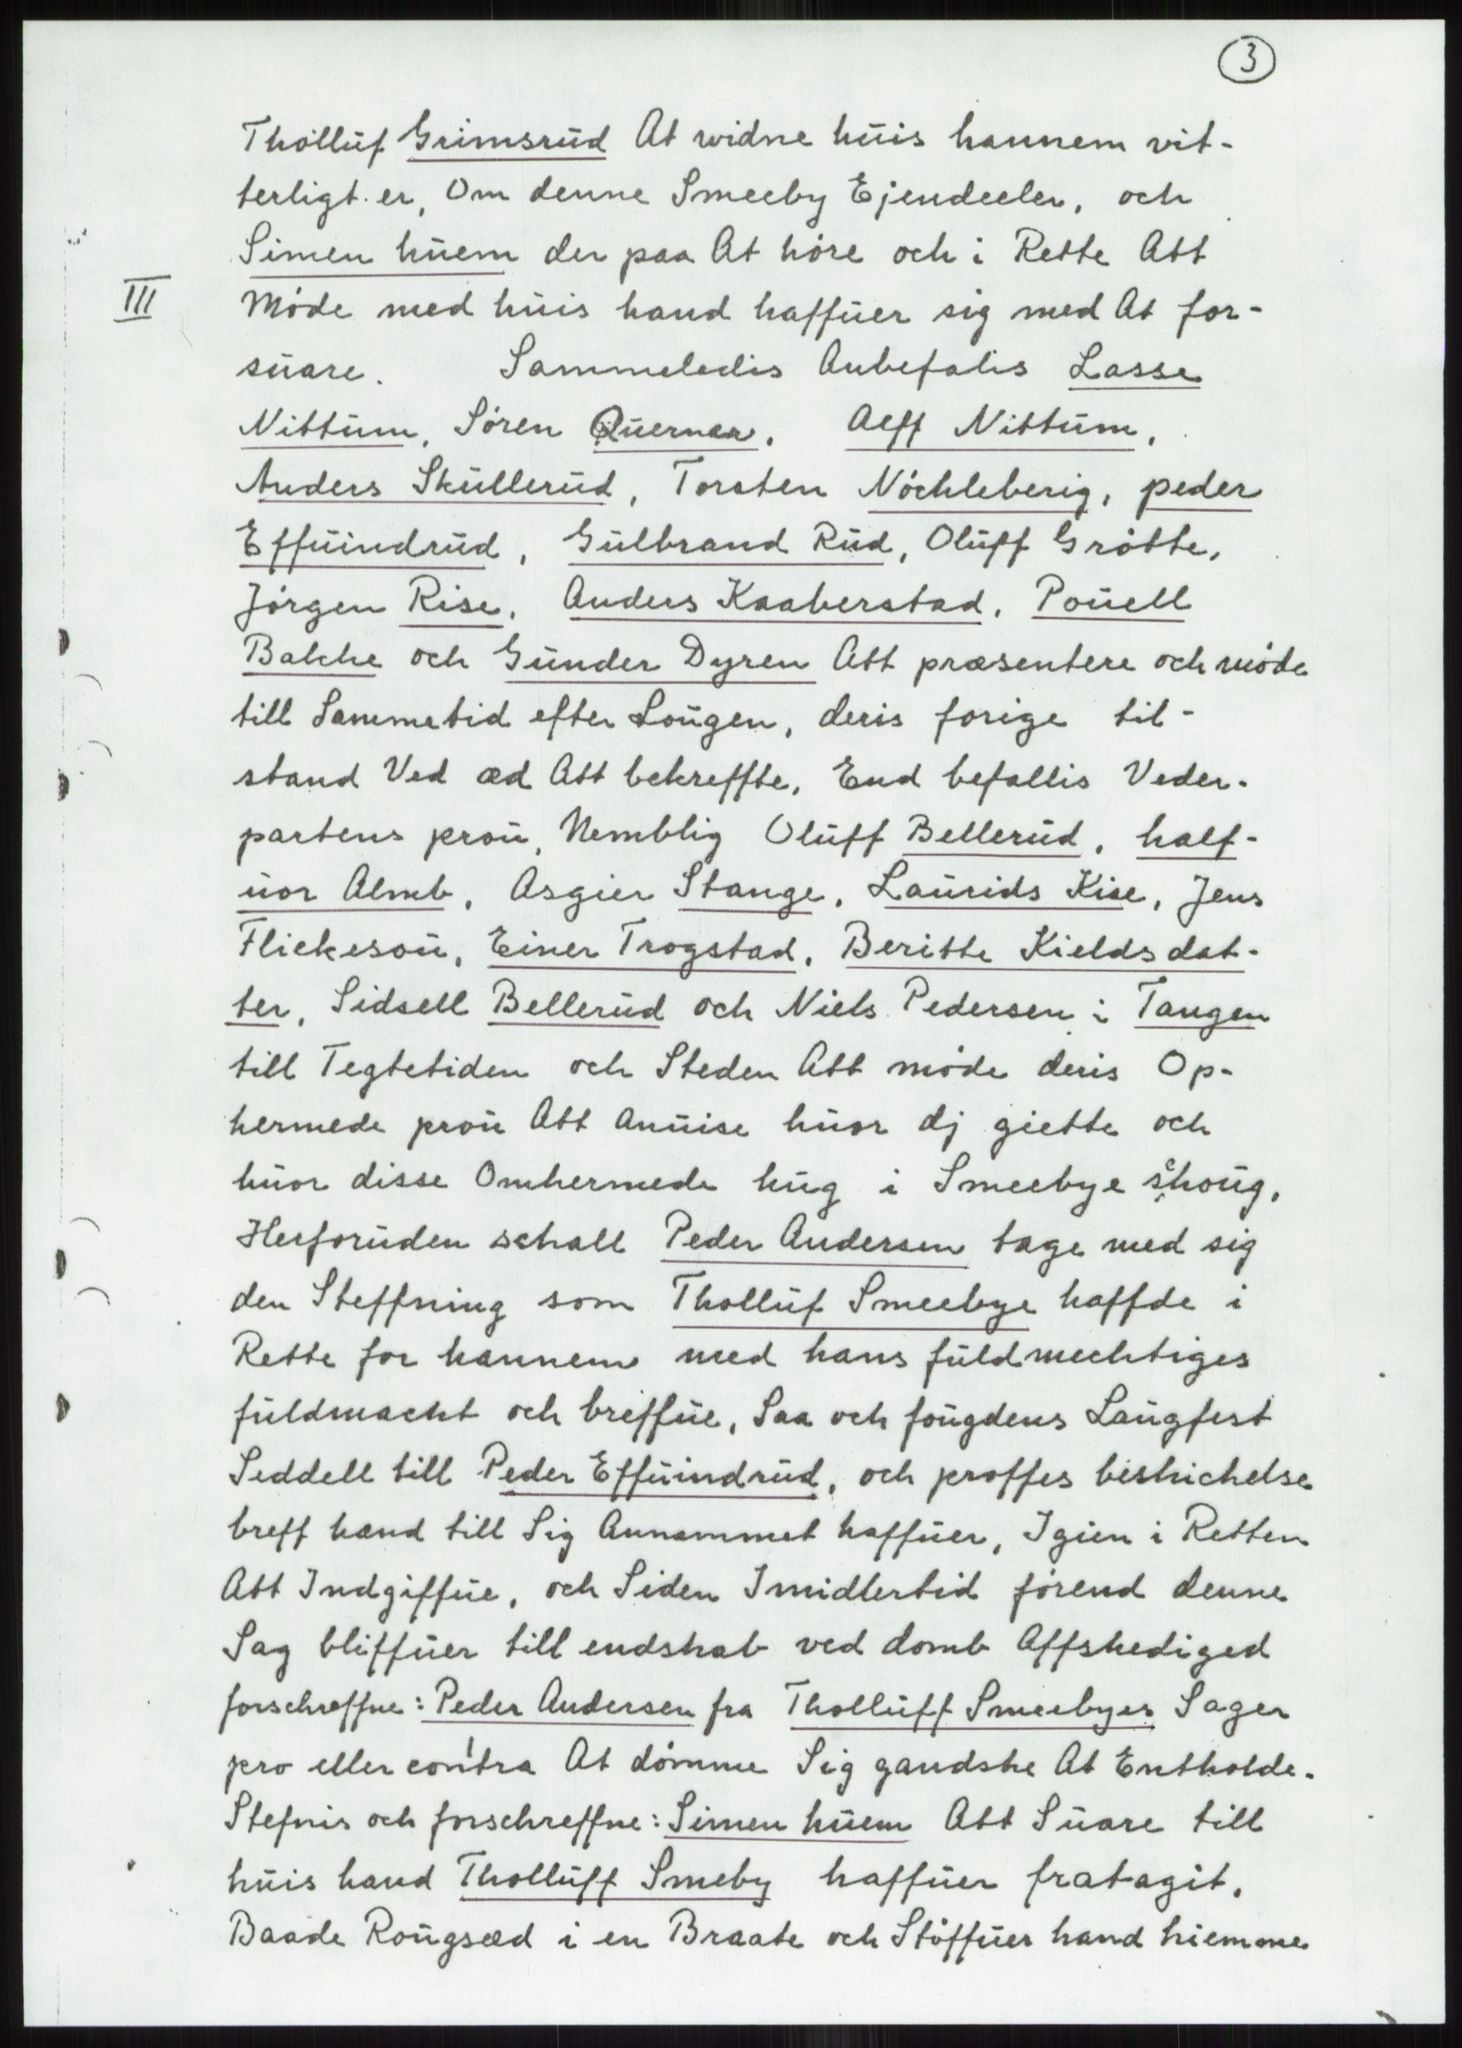 3
Tholluf Grimsrud At widne huis hannem vit-
terligt er, Om denne Smeeby Ejendeeler, och
Simen huem der paa At höre och i Rette Att
III
Möde med huis hand haffuer sig med At for-
suare. Sammeledis Anbefalis Lasse
Nittum, Sören Quernar, Aeff Nittum,
Anders Skullerud, Torsten Nöchleberig, peder
Effuindrud, Gulbrand Rud, Oluff Grötte,
Jörgen Rise, Anders Kaaberstad, Pouell
Balche och Gunder Dyren Att præsentere och möde
till Sammetid efter Lougen, deris forige til-
stand Ved æd Att bekreffte, End befallis Veder-
partens prou, Nemblig Oluff Bellerud, half-
uor Almb, Asgier Stange, Laurids Kise, Jens
Flickesou, Einer Trogstad, Beritte Kieldsdat-
ter, Sidsell Bellerud och Niels Pedersen i Tangen
till Tegtetiden och Steden Att möde deris Op-
hermede prou Att anuise huor dj giette och
huor disse Omhermede hug i Smeebye skoug,
Herforuden schall Peder Andersen tage med sig
den Steffning som Tholluf Smeebye haffde i
Rette for hannem med hans fuldmechtiges
fuldmacht och breffue, Saa och fougdens Laugfest
Seddell till Peder Effuindrud, och proffes beskichelse
breff hand till Sig Annammet haffuer, Igien i Retten
Att Indgiffue, och Siden Imidlertid förend denne
Sag bliffuer till endskab ved domb Affskediged
forschreffne: Peder Andersen fra Tholluff Smeebyes Sager
pro eller contra At dömme Sig gandske At Entholde.
Stefnis och forschreffne: Simen huem Att Suare till
huis hand Tholluff Smeby haffuer fratagit,
Baade Rougsæd i en Braate och Stöffuer hand hiemme